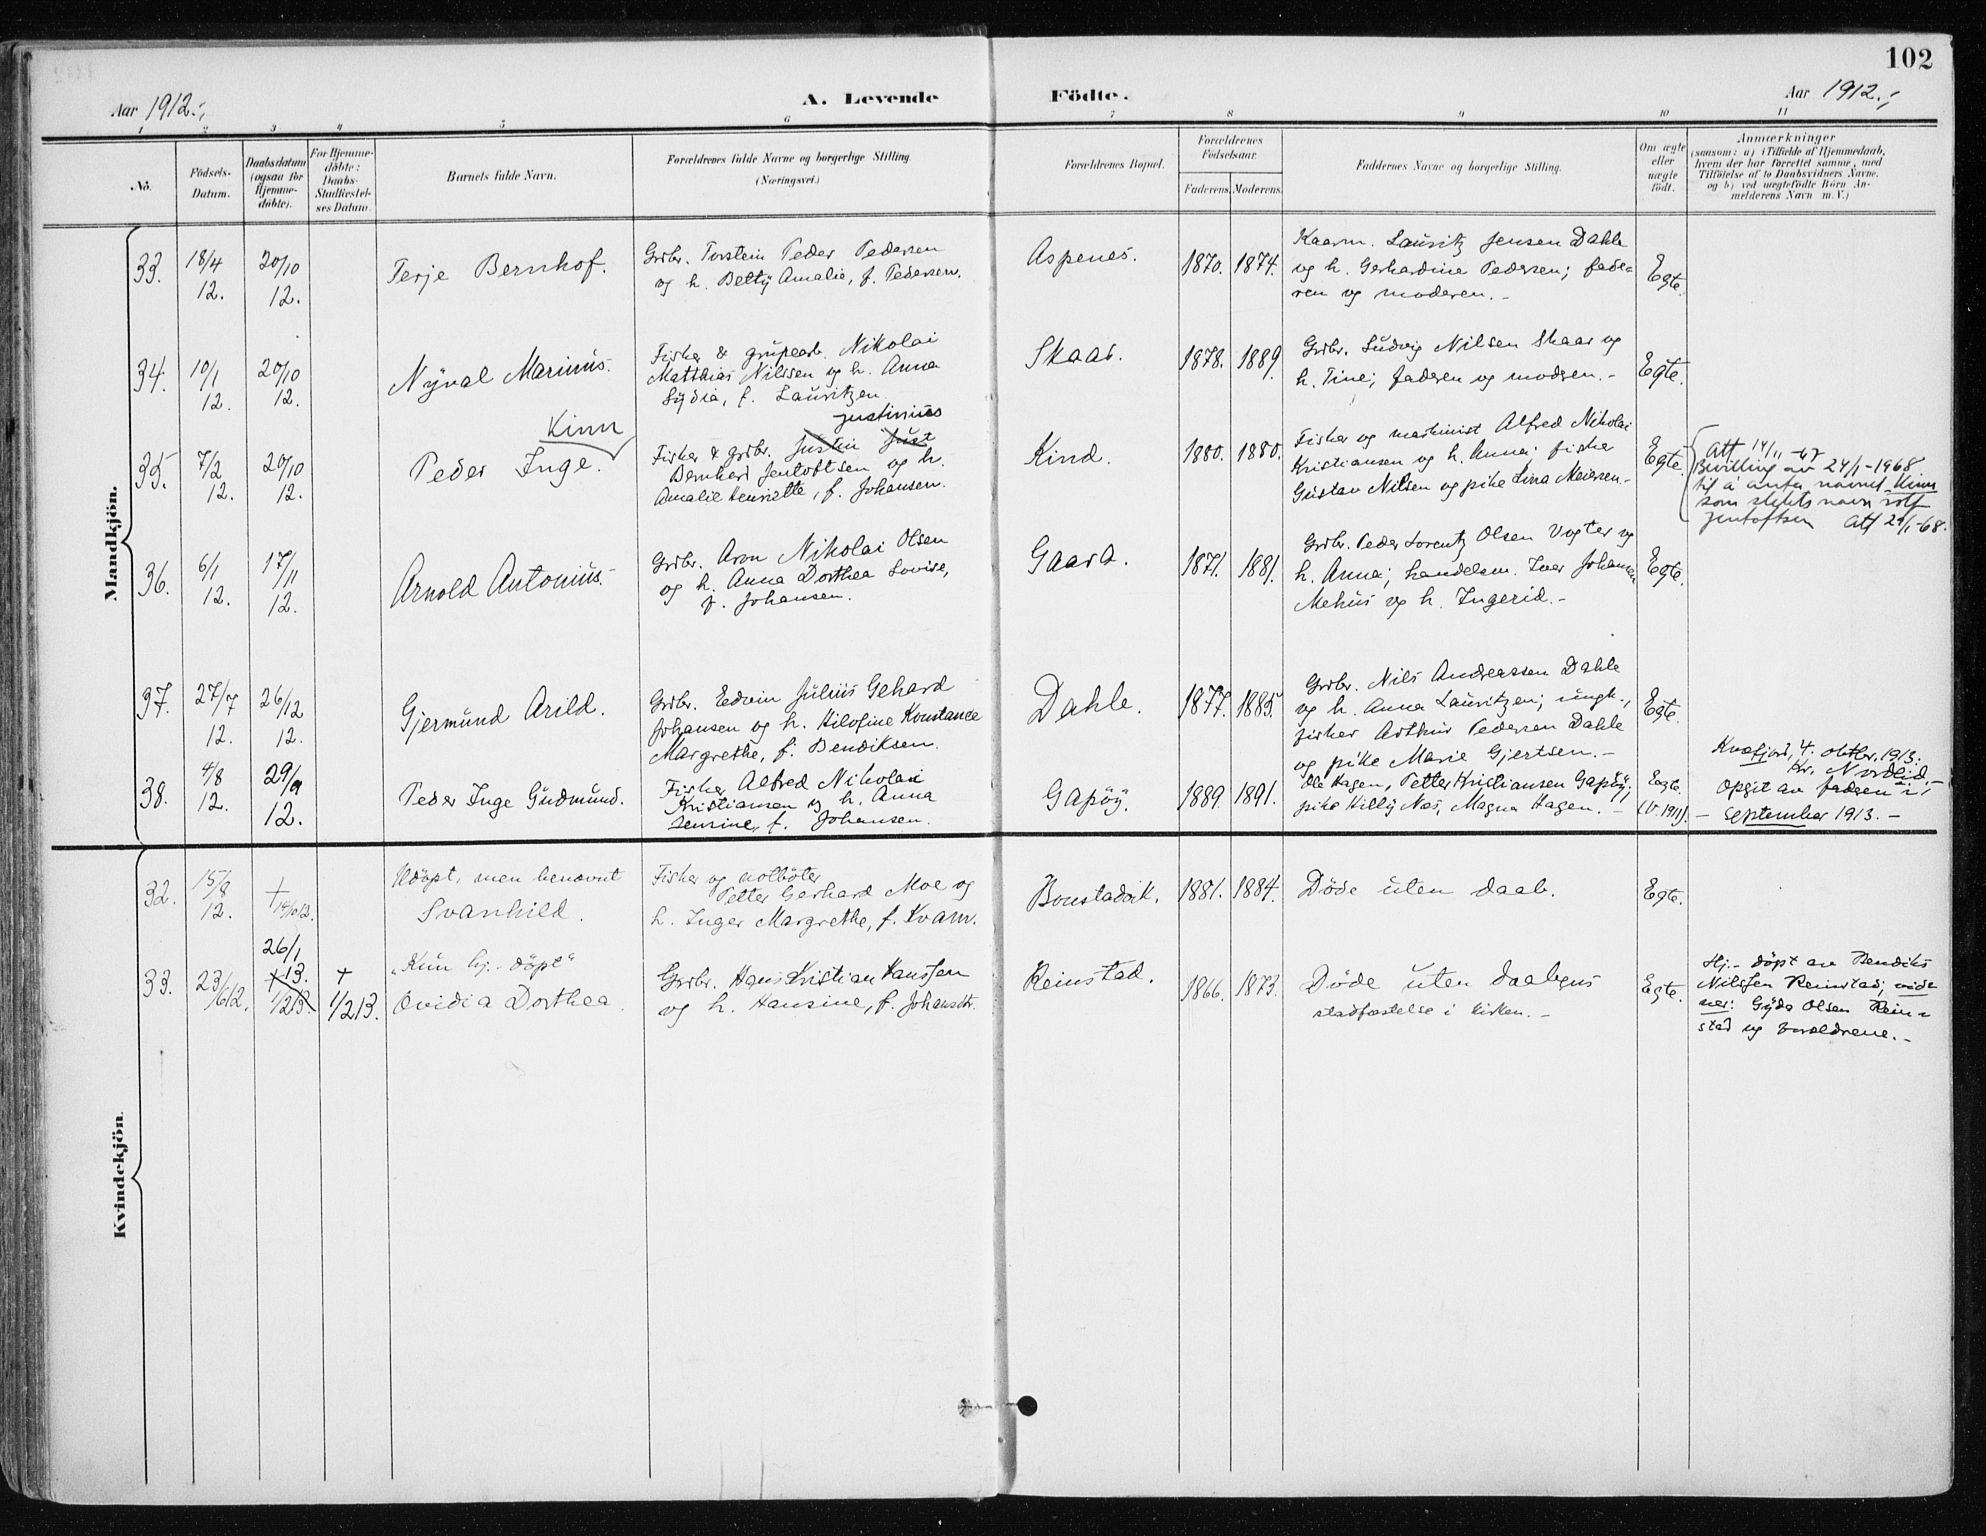 102
Aar 1912.;
A. Levende Födte.
Aar 1912.;
1 2 3 4 5 6 7 8 9 10 11
No.
Födsels-
Datum.
Daabsdatum
(ogsaa for
Hjemme-
döbte).
For Hjemme-
döbte:
Daabs-
Stadfæstel-
ses Datum.
Barnets fulde Navn.
Forældrenes fulde Navne og borgerlige Stilling.
(Næringsvei.)
Forældrenes Bopæl.
Forældrenes
Födselsaar.
Faderens. Moderens.
Faddernes Navne og borgerlige Stilling.
Om ægte
eller
uægte
födt.
Anmærkninger
(saasom: a) i Tilfælde af Hjemmedaab,
hvem der har forrettet samme, med
Tilföielse af to Daabsvidners Navne,
og b) ved uægtefödte Börn An-
melderens Navn m. V.)
Mandkjön.
33.
18/4
12.
20/10
12.
Terje Bernhof.
Grdbr. Torstein Peder Pedersen
og h. Betty Amalie, f. Pedersen.
Aspenes.
1870. 1874.
Kaarm. Lauritz Jensen Dahle
og h. Gerhardine Pedersen; fade-
ren og moderen.-
Egte.
34.
10/1
12.
20/10
12.
Nyval Marinus.
Fisker & grubearb. Nikolai
Matthias Nilssen og h. Anna
Lydia, f. Lauritzen.
Skaar.
1878. 1889.
Grdbr. Ludvig Nilsen Skaar og
h. Tine; faderen og modren.-
Egte.
35.
7/2
12.
20/10
12.
Kinn
Peder Inge.
Justinius
Fisker & grdbr. Justin Just
Bernhard Jentoftsen og h.
Amalie Henriette, f. Johansen.
Kind.
1880. 1880.
Fisker og maskinist Alfred Nikolai
Kristiansen og h. Anna; fisker
Gustav Nilsen og pike Lina Meiersen.-
Egte.
Att 14/11-67
Bevilling av 24/1-1968
til å anta navnet Kinn
som slektsnavn istf
Jentoftsen Att 29/1-68.
36.
6/1
12.
17/11
12.
Arnold Antonius.
Grdbr. Aron Nikolai Olsen
og h. Anna Dorthea Lovise,
f. Johansen.
Gaara.
1871. 1881.
Grdbr. Peder Lorentz Olsen Vogter og
h. Anna; handelsm. Iver Johansen
Mehus og h. Ingerid.-
Egte.
37.
27/7
12.
26/12
12.
Gjermund Arild.
Grdbr. Edvin Julius Gehard
Johansen og h. Hilofine Konstance
Margrethe, f. Bendiksen.
Dahle.
1877. 1885.
Grdbr. Nils Andreassen Dahle
og h. Anna Lauritzen; ungk.,
fisker Arthur Pedersen Dahle
og pike Marie Gjertsen.-
Egte.
38.
4/8
12.
29/9
12.
Peder Inge Gudmund.
Fisker Alfred Nikolai
Kristiansen og h. Anna
Jensine, f. Johansen.
Gapöy.
1889. 1891.
Ole Hagen, Petter Kristiansen Gapöy;
pike Hilly Næs, Magna Hagen.-
Egte.
(V. 1911).
Kvæfjord, 4. oktbr. 1913.
Kr. Nordlid.-
Opgit av faderen i
- september 1913.-
Kvindekjön.
32.
15/8
12.
+
14/10 12.
Udöpt, men benævnt
Svanhild.
Fisker og notböter
Petter Gerhard Moe og
h. Inger Margrethe, f. Kvam.
Bonstadvik.
1881. 1884.
Döde uten daab.
Egte.
33.
23/6 12.
26/1
13.
+
1/2 13.
+
1/2 13.
"Kun hj.-döpt"
Ovidia Dorthea.
Grdbr. Hans Kristian Hanssen
og h. Hansine, f. Johansdtr.
Reinstad.
1866. 1873.
Döde uten daabens
stadfæstelse i kirken.-
Egte.
Hj.-döpt av Bendiks
Nilssen Reinstad; vid-
ner: Gyda Olsen Rein-
stad og forældrene.-